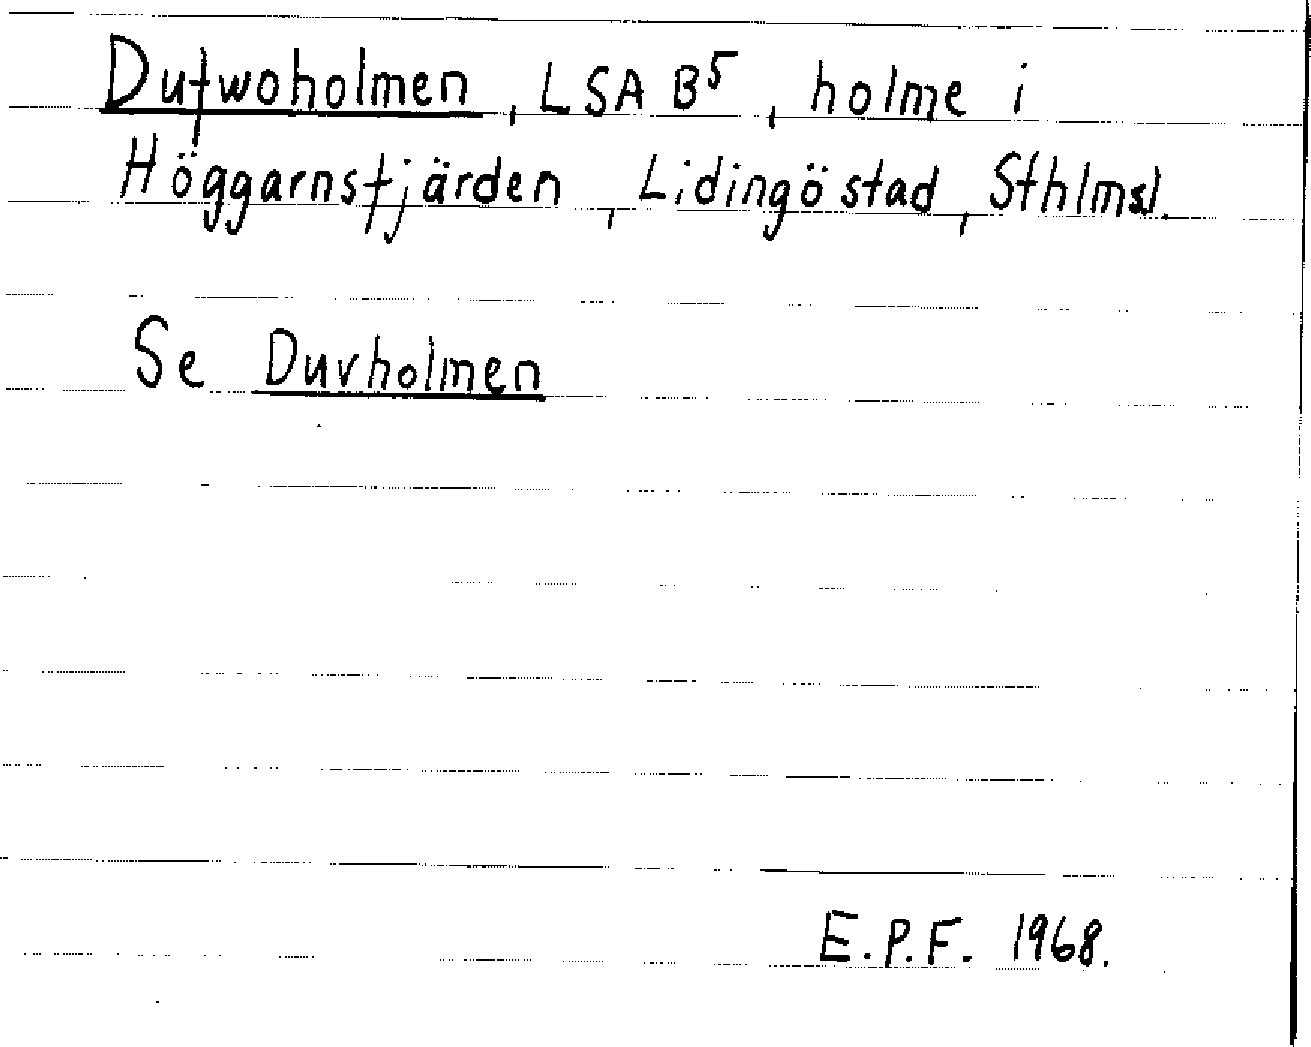 Dufwoholmen, LSA B⁵, holme i
Höggarnsfjärden, Lidingö stad, Sthlmsl.
Se Duvholmen
E.P.F. 1968.